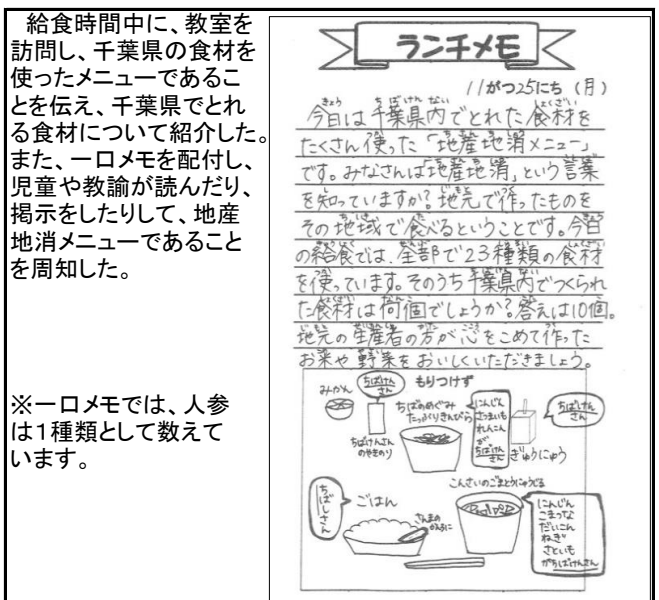 給食時間中に、教室を
訪問し、千葉県の食材を
使ったメニューであるこ
とを伝え、千葉県でとれ
る食材について紹介した。
また、一口メモを配付し、
児童や教諭が読んだり、
掲示をしたりして、地産
地消メニューであること
を周知した。
※一口メモでは、人参
は１種類として数えて
います。
ランチメモ
11がつ25にち（月）
今日は千葉県内でとれた食材を
たくさん使った「地産地消メニュー」
です。みなさんは「地産地消」という言葉
を知っていますか？地元で作ったものを
その地域で食べるということです。今日
の給食では、全部で23種類の食材
を使っています。そのうち千葉県内でつくられ
た食材は何個でしょうか？答えは10個。
地元の生産者の方が心をこめて作った
お米や野菜をおいしくいただきましょう。
もりつけず
みかん
ちばけん
さん
ちばけんさん
のやきのり
ちばのめぐみ
たっぷりきんぴら
にんじん
さつまいも
れんこん
が
ちばけん
さん
ぎゅうにゅう
ちばけん
さん
ちばしさん
ごはん
さんまの
かんろに
こんさいのごまとうにゅうじる
にんじん
こまつな
だいこん
ねぎ
さといも
がちばけんさん